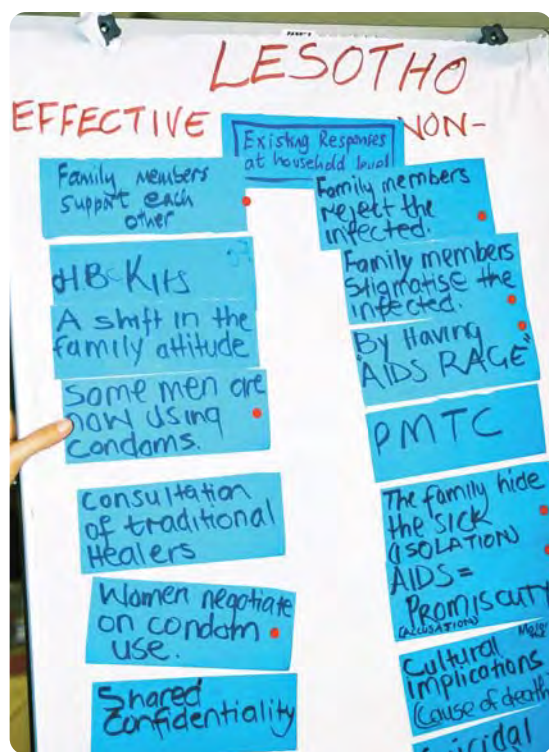 LESOTHO
EFFECTIVE
NON-
Existing Responses
at household level
Family Members
support each
other
HBC Kits
A shift in the
family attitude
Some men are
now using
condoms.
Consultation
of traditional
Healers
Women negotiate
on condom
use.
Shared
Confidentiality
Family members
reject the
infected.
Family members
Stigmatise the
infected.
By Having
"AIDS RAGE"
PMTC
The family hide
the SICK
(ISOLATION)
AIDS =
PROMISCUTY
(ACCUSATION)
Cultural
implications
(Cause of death